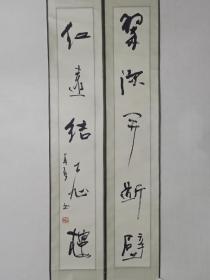 翠深开断壁
红遠结飞樓